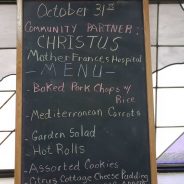 October 31st
COMMUNITY PARTNER:
CHRISTUS
Mother Frances Hospital
- MENU -
- Baked Pork Chops w/
Rice
- Mediterranean Carrots
- Garden Salad
- Hot Rolls
- Assorted Cookies
- Citrus Cottage Cheese Pudding